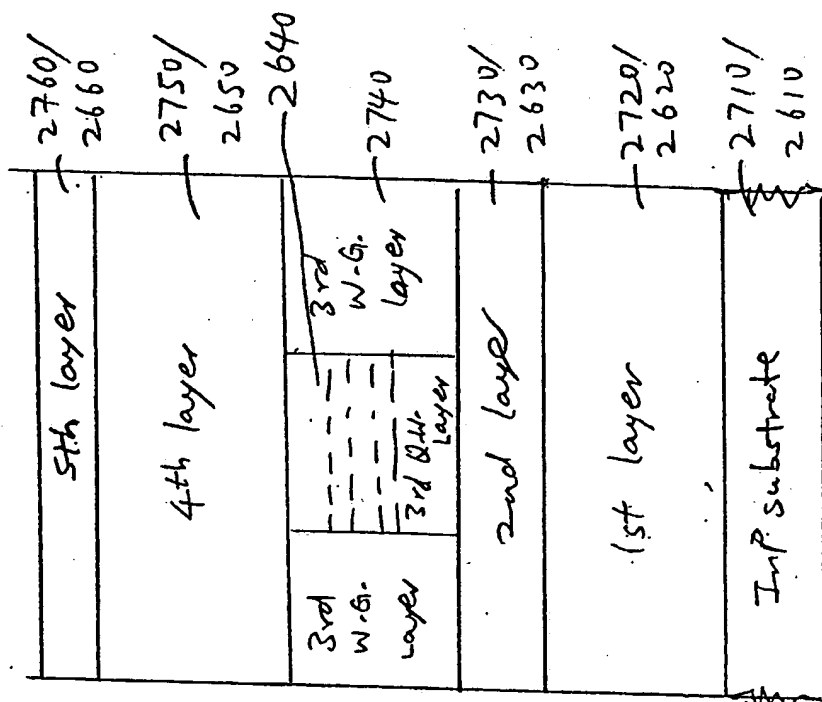 2760/
2660
2750/
2650
2640
2740
2730/
2630
2720/
2620
2710/
2610
5th layer
4th layer
3rd
W.G.
Layer
3rd Q.W.
Layer
3rd
W.G.
layer
2nd layer
1st layer
InP substrate